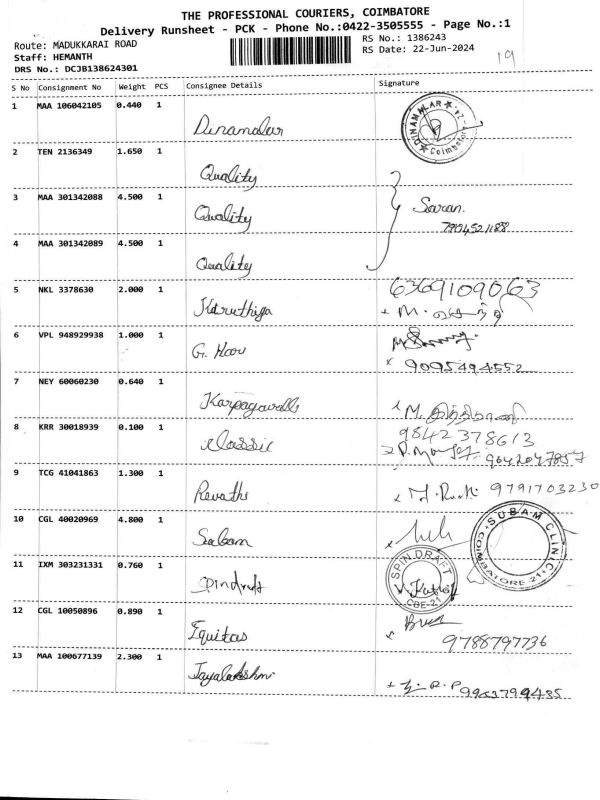 THE PROFESSIONAL COURIERS, COIMBATORE
Delivery Runsheet - PCK - Phone No.:0422-3505555 - Page No.:1
Route: MADUKKARAI ROAD
RS No.: 1386243
Staff: HEMANTH
RS Date: 22-Jun-2024
19
DRS No.: DCJB138624301
S No Consignment No Weight PCS Consignee Details Signature
1 MAA 106042105 0.440 1 Dinamalar
DINAMALAR Coimbatore
2 TEN 2136349 1.650 1 Quality
3 MAA 301342088 4.500 1 Quality Saran.
4 MAA 301342089 4.500 1 Quality
5 NKL 3378630 2.000 1 Karuthiga 6369109063
M.
6 VPL 948929938 1.000 1 G. Hari
9095494552
7 NEY 60060230 0.640 1 Karpagavalli M.
8 KRR 30018939 0.100 1 Classic 9842378613
9042047857
9 TCG 41041863 1.300 1 Revathi 9791703230
10 CGL 40020969 4.800 1 Subam
SUBAM CLINIC COIMBATORE-21
11 IXM 303231331 0.760 1 Spindraft
SPIN DRAFT CBE-21
12 CGL 10050896 0.890 1 Equitas
9788797736
13 MAA 100677139 2.300 1 Jayalakshmi